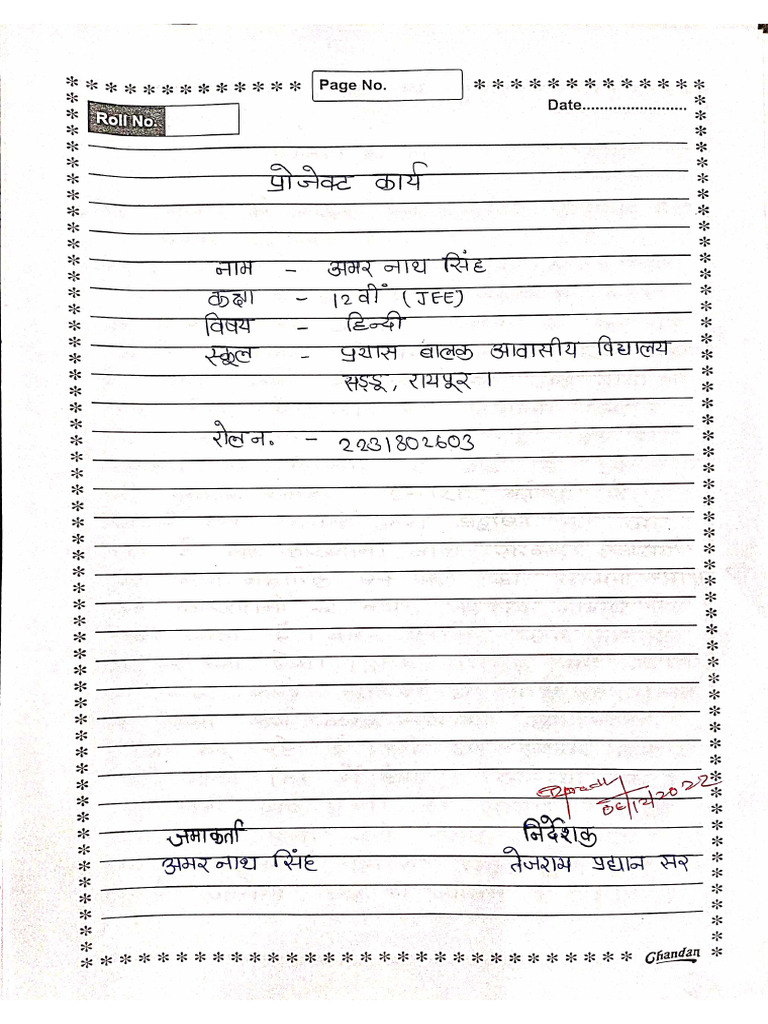 Page No.
Date........................
Roll No.
प्रोजेक्ट कार्य
नाम - अमर नाथ सिंह
कक्षा - 12वीं (JEE)
विषय - हिन्दी
स्कूल - प्रयास बालक आवासीय विद्यालय
सड्डू, रायपुर ।
रोल न. - 2231802603
06/12/2022
जमाकर्ता निर्देशक
अमर नाथ सिंह तेजराम प्रधान सर
Chandan